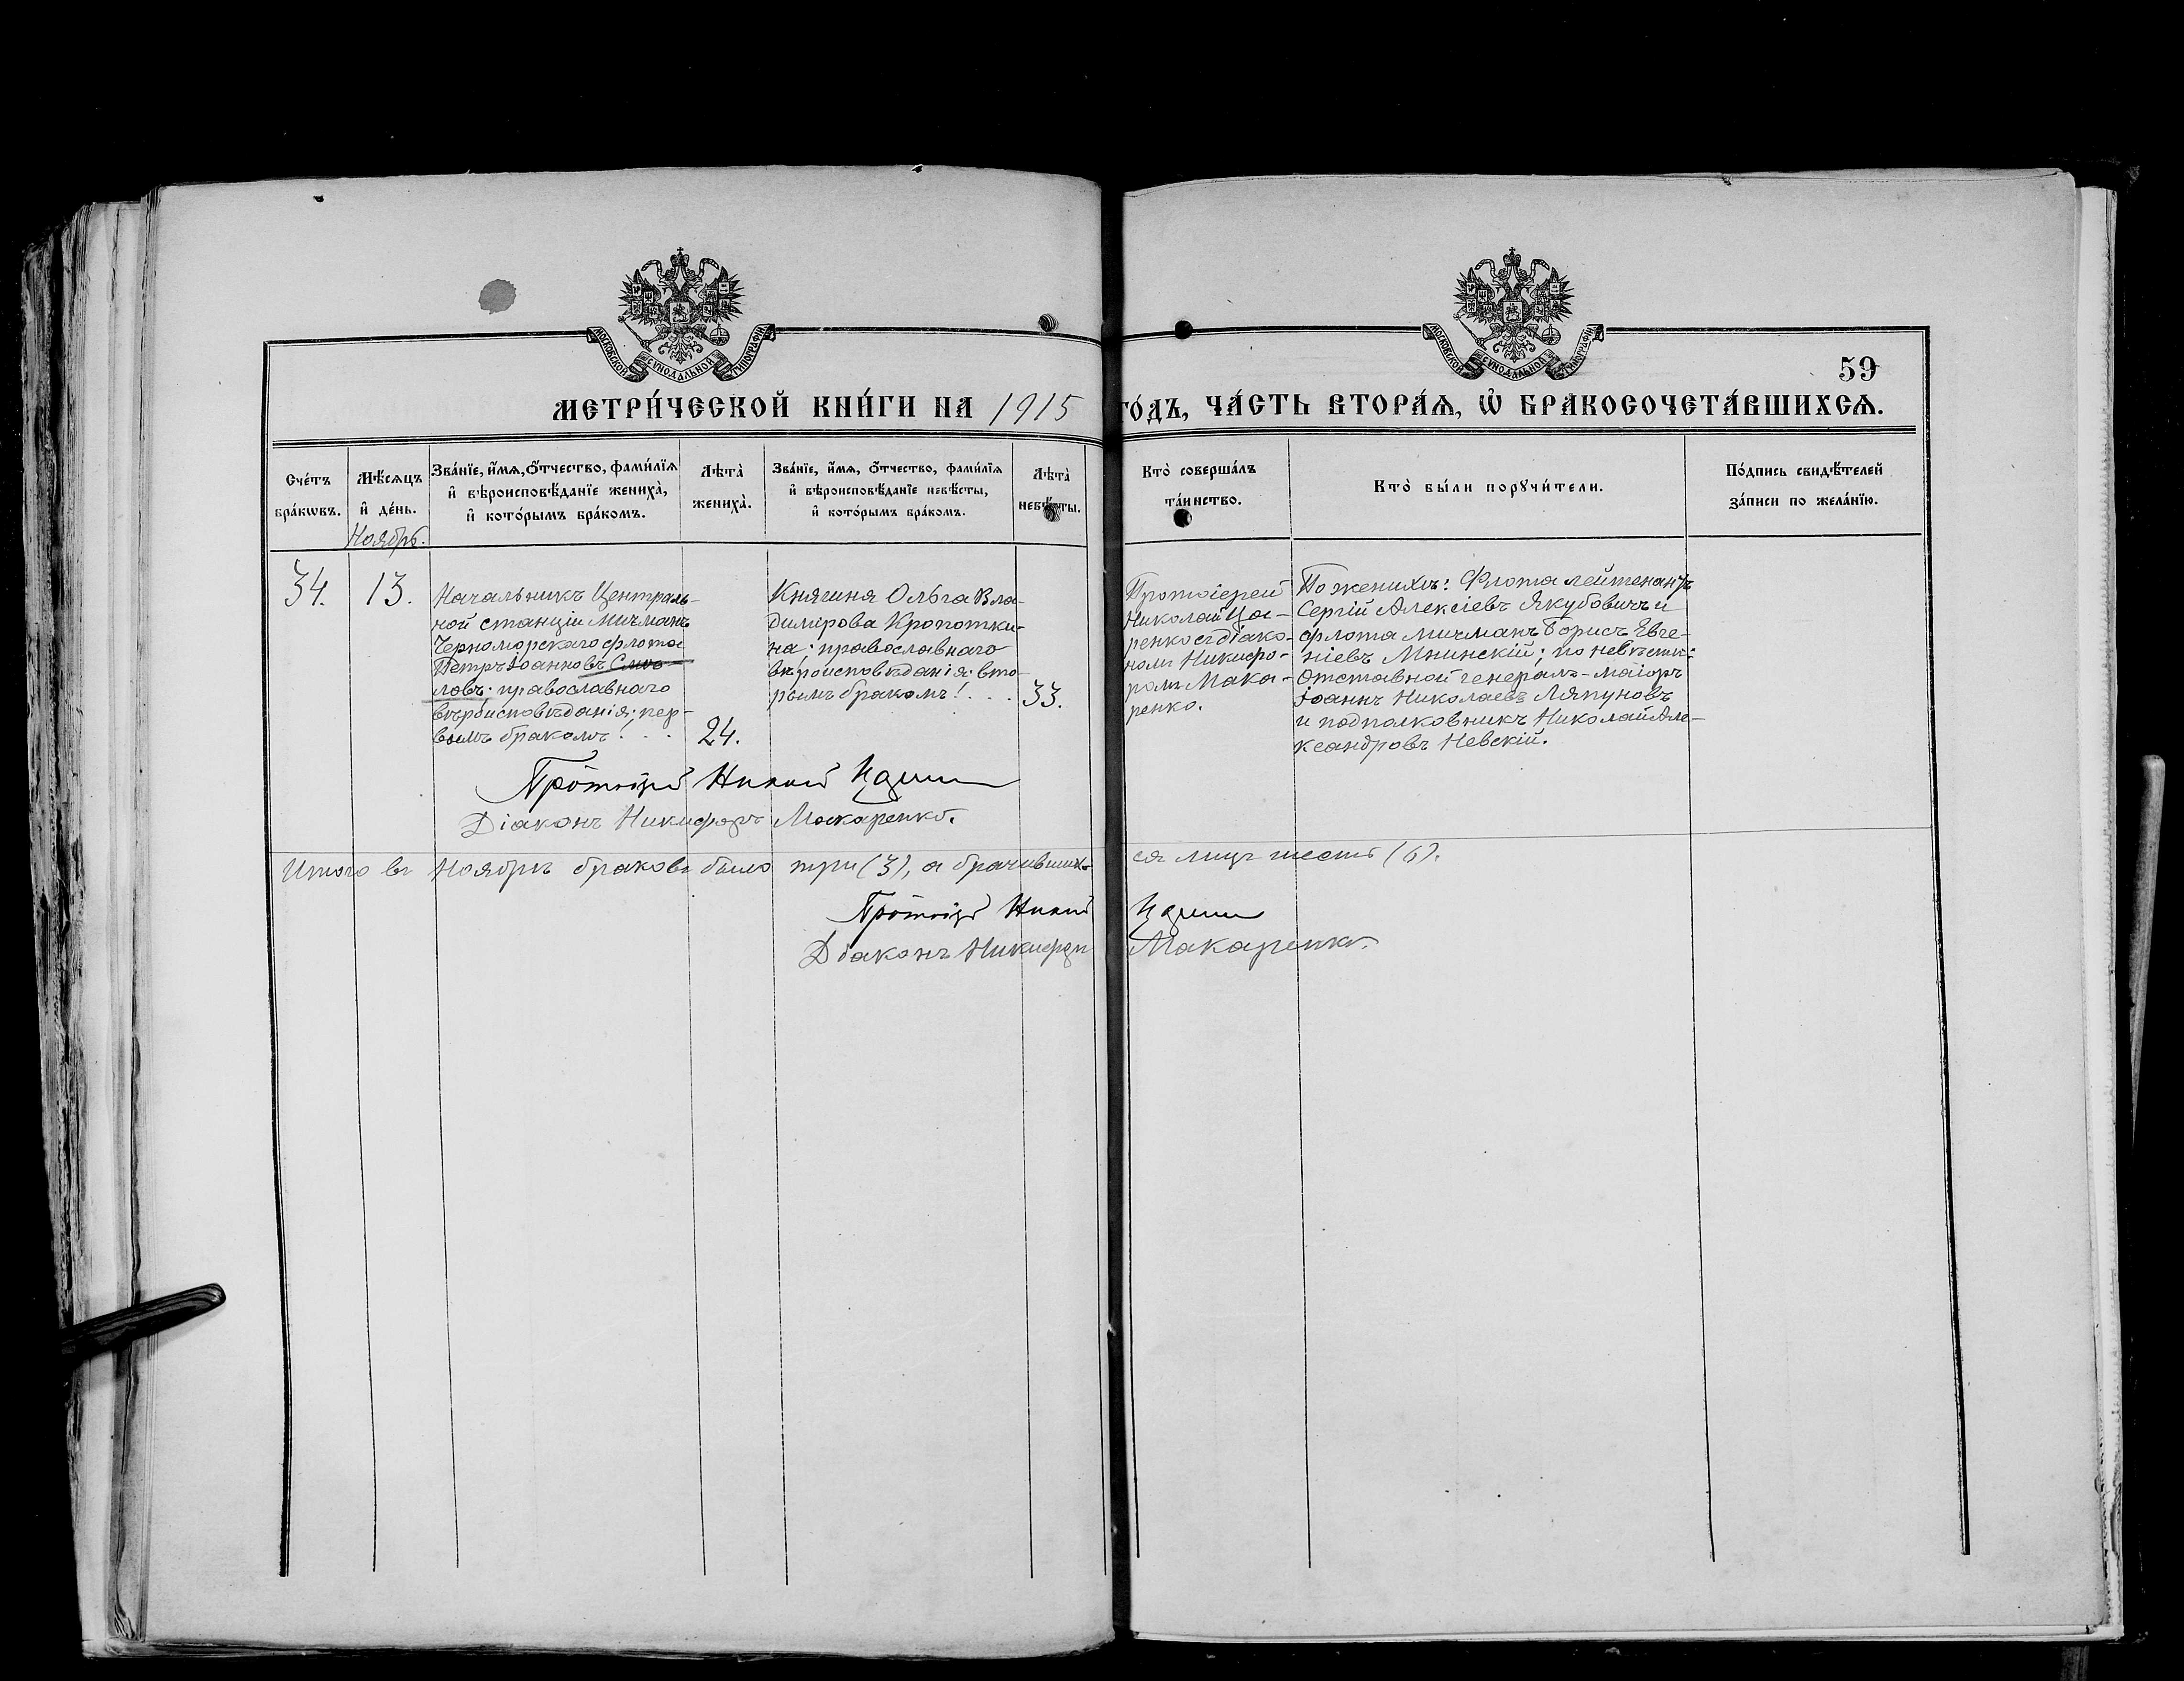 МОСКОВСКОЙ СУНОДАЛЬНОЙ ТИПОГРАФІИ
МОСКОВСКОЙ СУНОДАЛЬНОЙ ТИПОГРАФІИ
59
МЕТРИ́ЧЕСКОЙ КНИ́ГИ НА 1915 ГО́ДЪ, ЧА́СТЬ ВТОРА́Ѧ, Ѡ҆ БРАКОСОЧЕТА́ВШИХСѦ.
Сче́тъ
бра́кѡвъ.
Мѣ́сѧцъ
и҆ де́нь.
Ноябрь.
Зва́нїе, и҆́мѧ, ѻ҆́тчество, фами́лїѧ
и҆ вѣроисповѣ́данїе жениха̀,
и҆ кото́рымъ бра́комъ.
Лѣта̀
жениха̀.
Зва́нїе, и҆́мѧ, ѻ҆́тчество, фами́лїѧ
и҆ вѣроисповѣ́данїе невѣ́сты,
и҆ кото́рымъ бра́комъ.
Лѣта̀
невѣ́сты.
Кто̀ соверша́лъ
та́инство.
Кто̀ бы́ли порꙋчи́тели.
По́дпись свидѣ́телей
за́писи по жела́нїю.
34.
13.
Начальникъ Централь-
ной станціи Мичманъ
Черноморскаго флота
Петръ Іоанновъ Смо-
ловъ: православнаго
вѣроисповѣданія; пер-
вымъ бракомъ! . . .
24.
Княгиня Ольга Вла-
димірова Кропотки-
на: православнаго
вѣроисповѣданія: вто-
рымъ бракомъ! . . .
33.
Протоіерей
Николай Ца-
ренко съ діако-
номъ Никифо-
ромъ Мака-
ренко.
По женихѣ: Флота лейтенантъ
Сергій Алексіевъ Якубовичъ и
флота мичманъ Борисъ Евге-
ніевъ Мнинскій; по невѣстѣ:
Отставной генералъ-маіоръ
Іоаннъ Николаевъ Ляпуновъ
и подполковникъ Николай Але-
ксандровъ Невскій.
Протоіерей Николай
Діаконъ Никифоръ Макаренко.
Итого въ Ноябрѣ браковъ было три (3), а брачивших- ся лицъ шесть (6).
Протоіерей Николай
Діаконъ Никифоръ Макаренко.